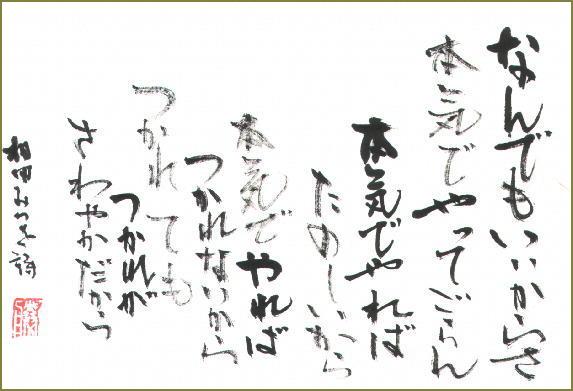 なんでもいいからさ
本気でやってごらん
本気でやれば
たのしいから
本気でやれば
つかれないから
つかれても
つかれが
さわやかだから
相田みつを 語